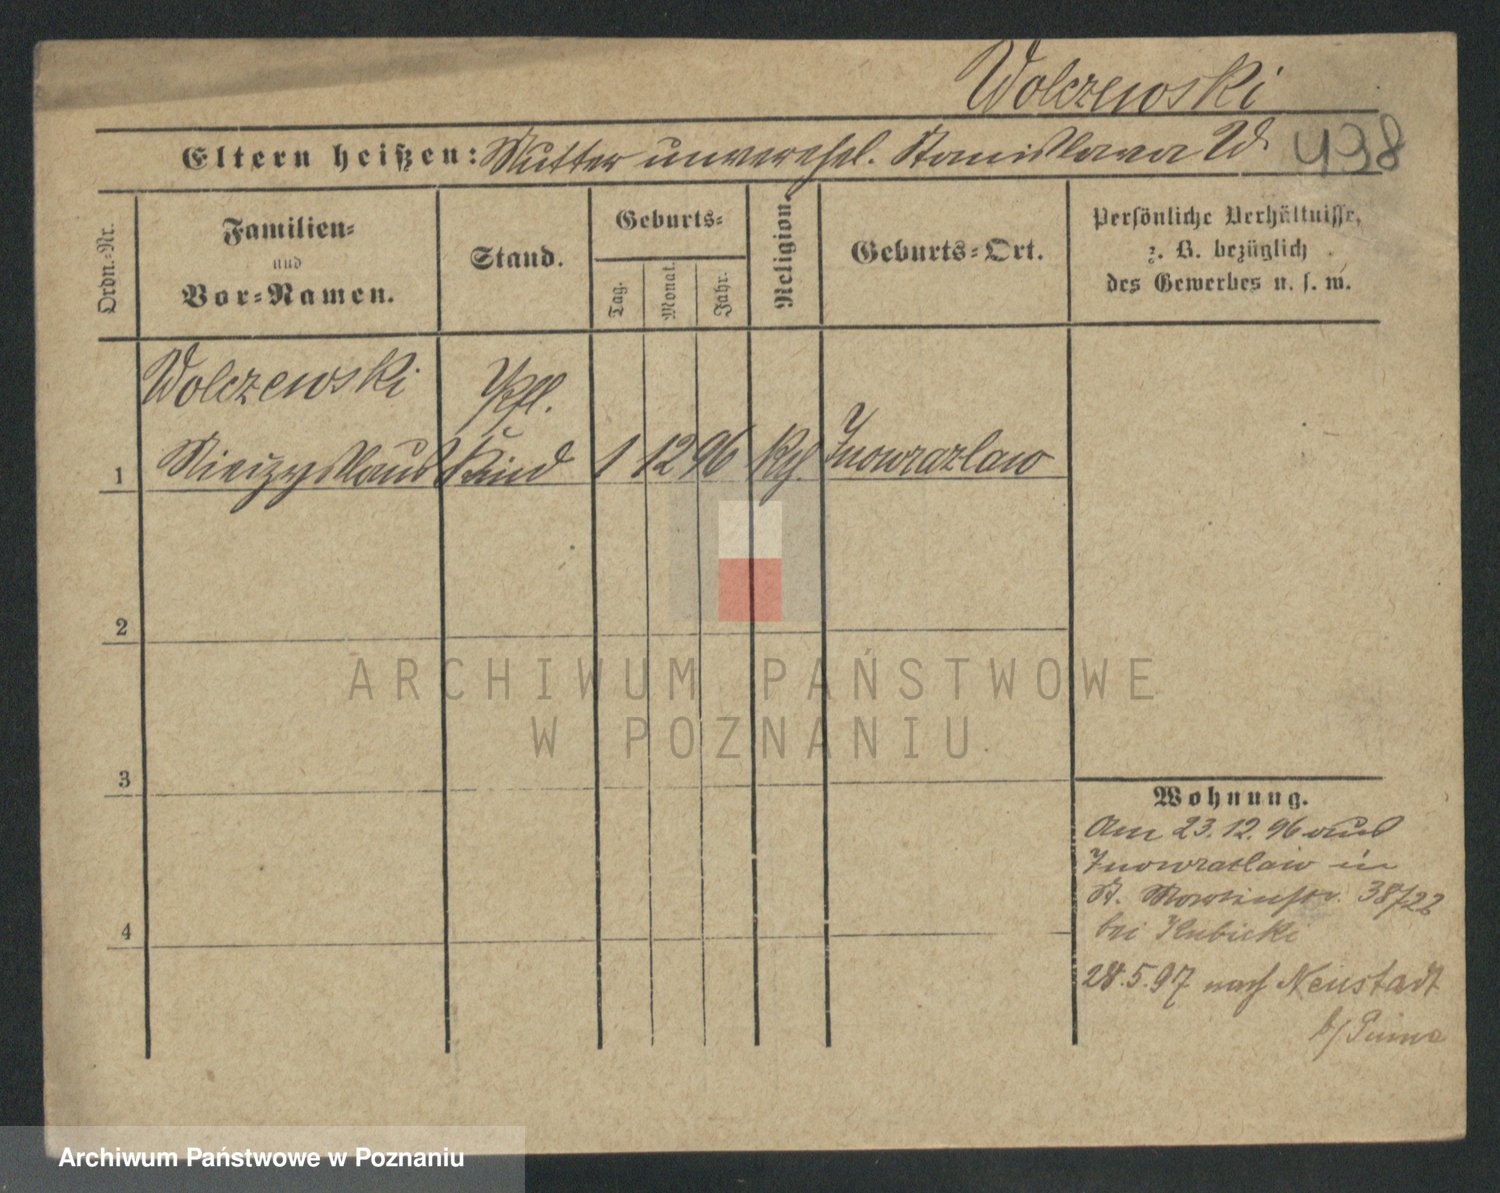 Wolczewski
Eltern heißen: Mutter unverehel. Stanislawa W.
498
Ordn.=Nr.
Familien=
und
Vor=Namen.
Stand.
Geburts=
Tag.
Monat.
Jahr.
Religion.
Geburts=Ort.
Persönliche Verhältnisse,
z. B. bezüglich
des Gewerbes u. s. w.
Wolczewski Pfl.
1 Mieczyslaus Kind 1 12 96 kth. Inowrazlaw
2
3
4
Wohnung.
Am 23.12.96 aus
Inowrazlaw in
St. Martinstr. 38/22
bei Hubicki
28.5.97 nach Neustadt
b/ Pinne
ARCHIWUM PAŃSTWOWE
W POZNANIU
Archiwum Państwowe w Poznaniu